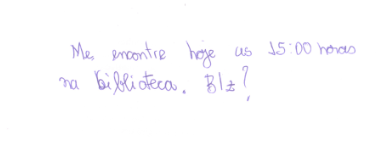 Me encontre hoje as 15:00 horas
na biblioteca. Blz?